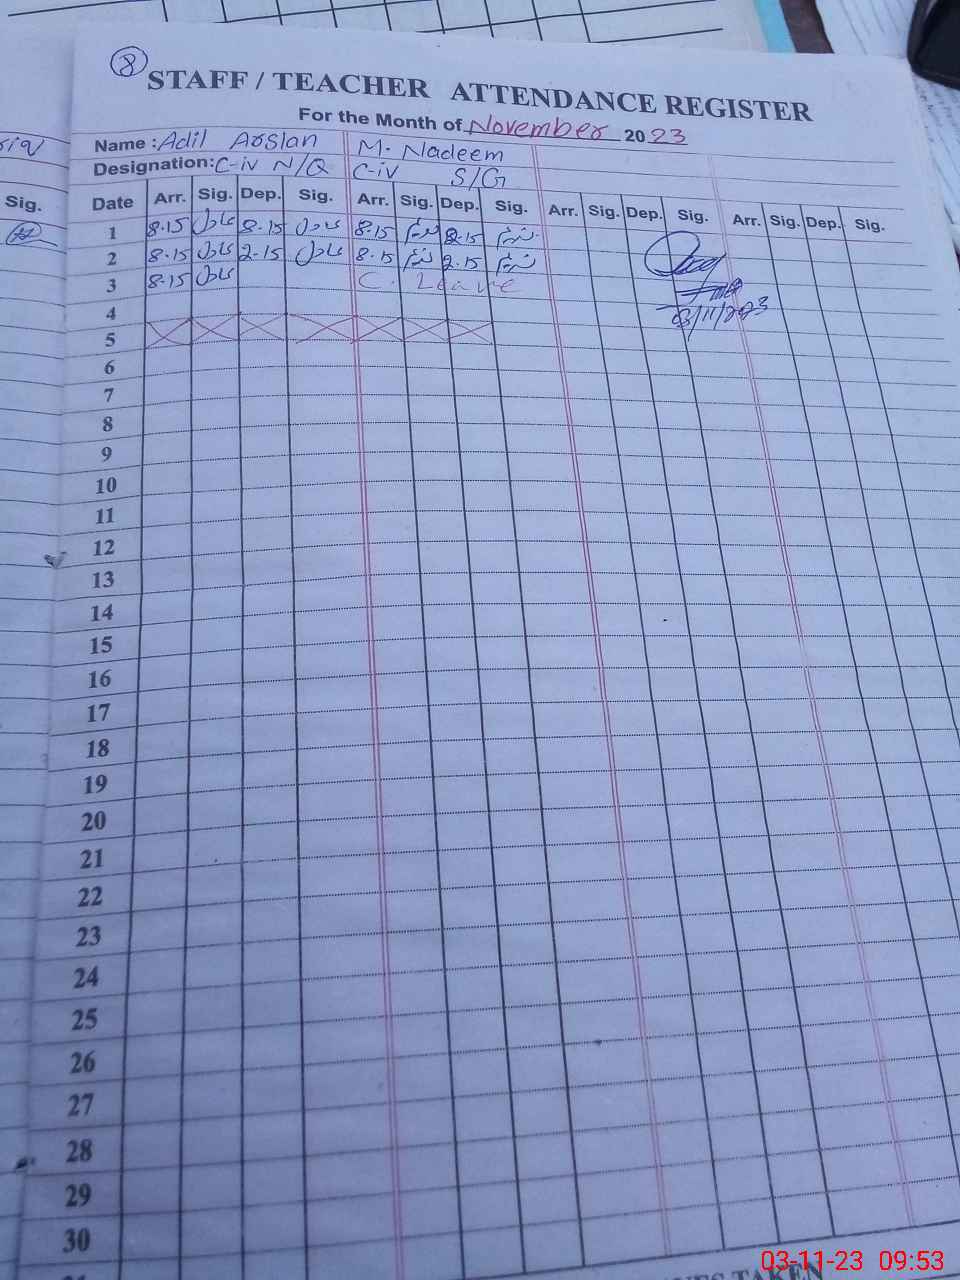 8
STAFF / TEACHER ATTENDANCE REGISTER
For the Month of November 2023
Name : Adil Arslan M. Nadeem
Designation: C-iv N/Q C-iv S/G
Sig.
Date Arr. Sig. Dep. Sig. Arr. Sig. Dep. Sig. Arr. Sig. Dep. Sig. Arr. Sig. Dep. Sig.
1 8.15 عادل 8.15 عادل 8.15 ندیم 8.15 ندیم
2 8.15 عادل 2.15 عادل 8.15 ندیم 2.15 ندیم
3 8.15 عادل C. Leave
4
03/11/2023
5
6
7
8
9
10
11
12
13
14
15
16
17
18
19
20
21
22
23
24
25
26
27
28
29
30
TAKEN
03-11-23 09:53